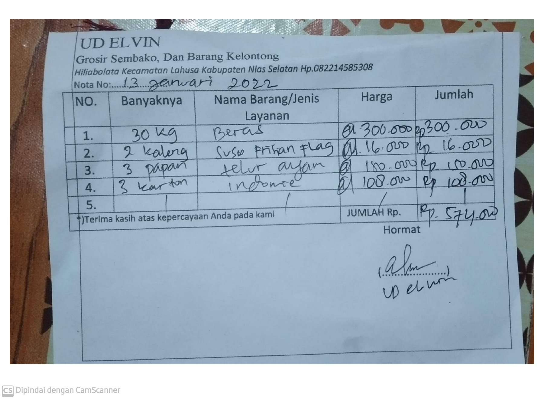 UD ELVIN
Grosir Sembako, Dan Barang Kelontong
Hiliabolata Kecamatan Lahusa Kabupaten Nias Selatan Hp.082214585308
Nota No:....13 Januari 2022
NO. Banyaknya Nama Barang/Jenis Layanan Harga Jumlah
1. 30 kg Beras @ 300.000 Rp 300.000
2. 2 kaleng Susu Frisan Flag @ 16.000 Rp 16.000
3. 3 papan telur ayam @ 150.000 Rp 150.000
4. 3 karton indomie @ 108.000 Rp 108.000
5.
*)Terima kasih atas kepercayaan Anda pada kami JUMLAH Rp. Rp. 574.000
Hormat
(..................)
UD elvin
CS Dipindai dengan CamScanner